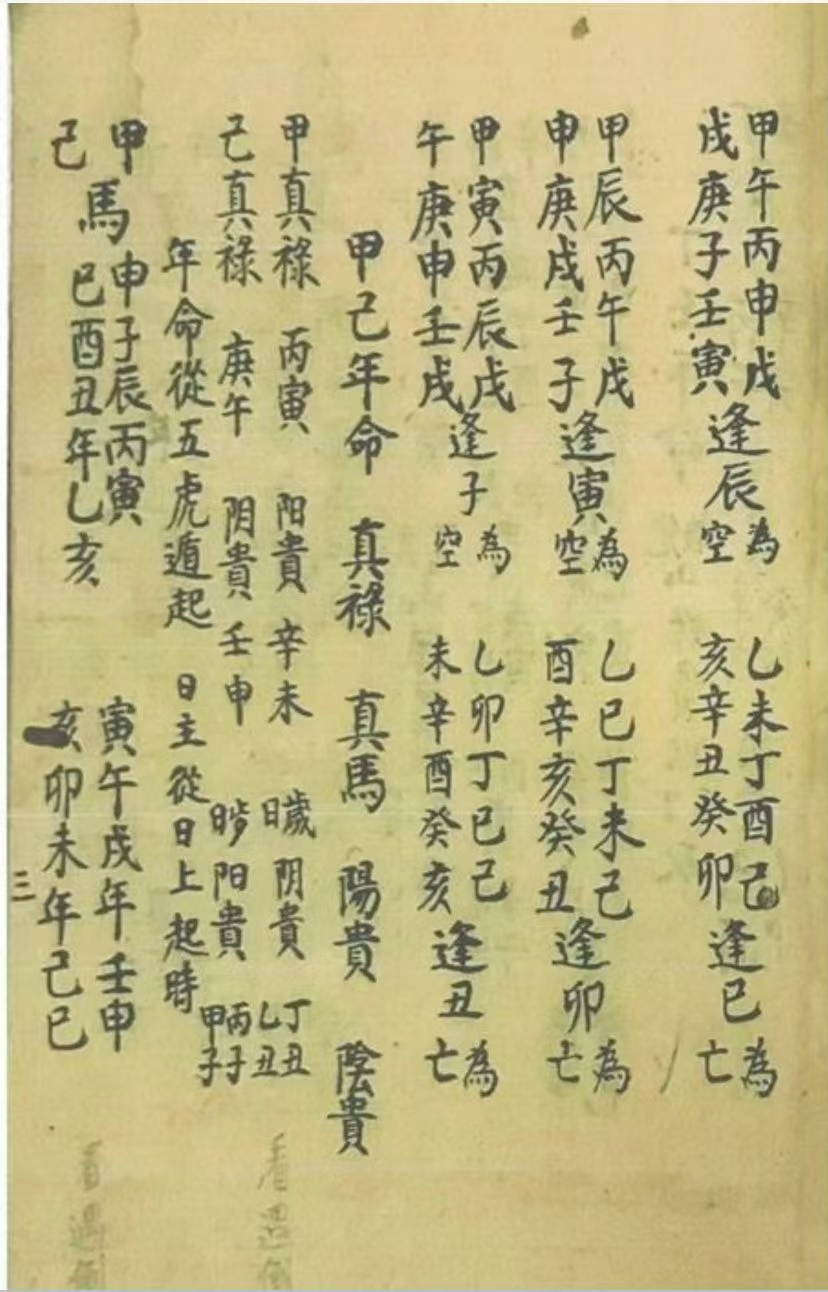 甲午丙申戊
戌庚子壬寅
逢辰
為
空
乙未丁酉己
亥辛丑癸卯
逢巳
為
亡
甲辰丙午戊
申庚戌壬子
逢寅
為
空
乙巳丁未己
酉辛亥癸丑
逢卯
為
亡
甲寅丙辰戊
午庚申壬戌
逢子
為
空
乙卯丁巳己
未辛酉癸亥
逢丑
為
亡
甲己年命 真祿 真馬 陽貴 陰貴
甲真祿 丙寅 阳貴 辛未
歲
日
阴貴
丁丑
乙丑
己真祿 庚午 阴貴 壬申
歲
日
阳貴
丙子
甲子
年命從五虎遁起 日主從日上起時
甲
己
馬
申子辰丙寅
巳酉丑年乙亥
寅午戌年壬申
亥卯未年己巳
三